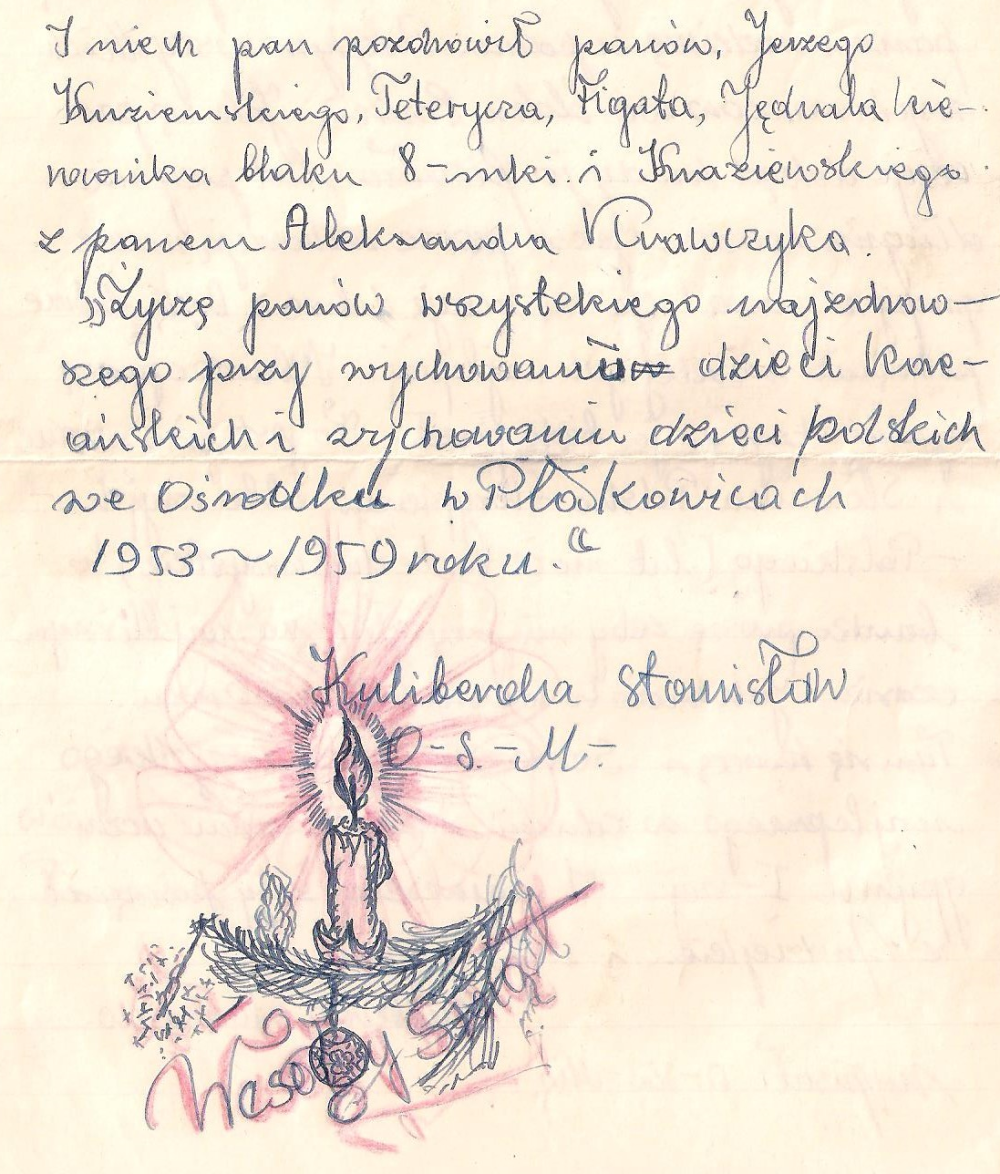 I niech pan pozdrowił panów, Jerzego
Kuziemskiego, Teterycza, Figata, Jędrala kie-
rownika blaku 8-mki i Knaziewskiego
z panem Aleksandra Krawczyka
„Życzę panów wszystekiego najzdrow-
szego przy wychowaniu dzieci kore-
ańskich i wychowaniu dzieci polskich
we Ośrodku w Płaskowicach
1953~1959 roku.“
Kuliberda Stanisław
O-S.-M-.
Wesoły Świąt